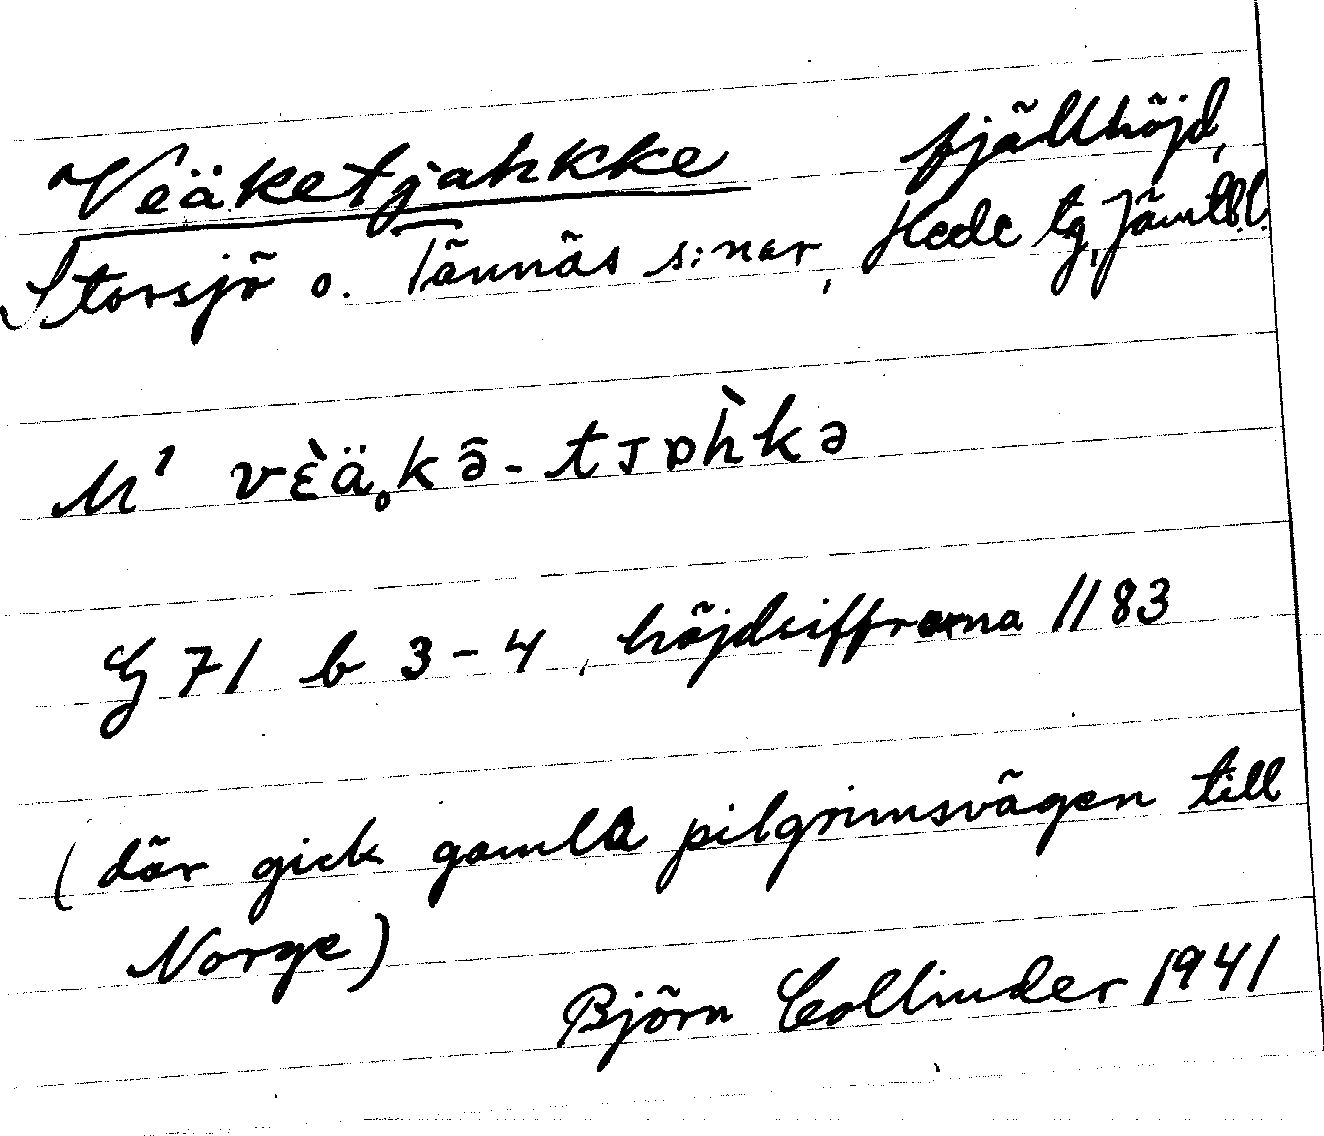 Veäketjahkke fjällhöjd,
Storsjö o. Tännäs s:nar, Hede tg, Jämtl.l.
M¹ vɛ̀ä˳kə̄-tᴊɒh̀kə
G 71 b 3-4, höjdsiffrorna 1183
(där gick gamla pilgrimsvägen till
Norge)
Björn Collinder 1941